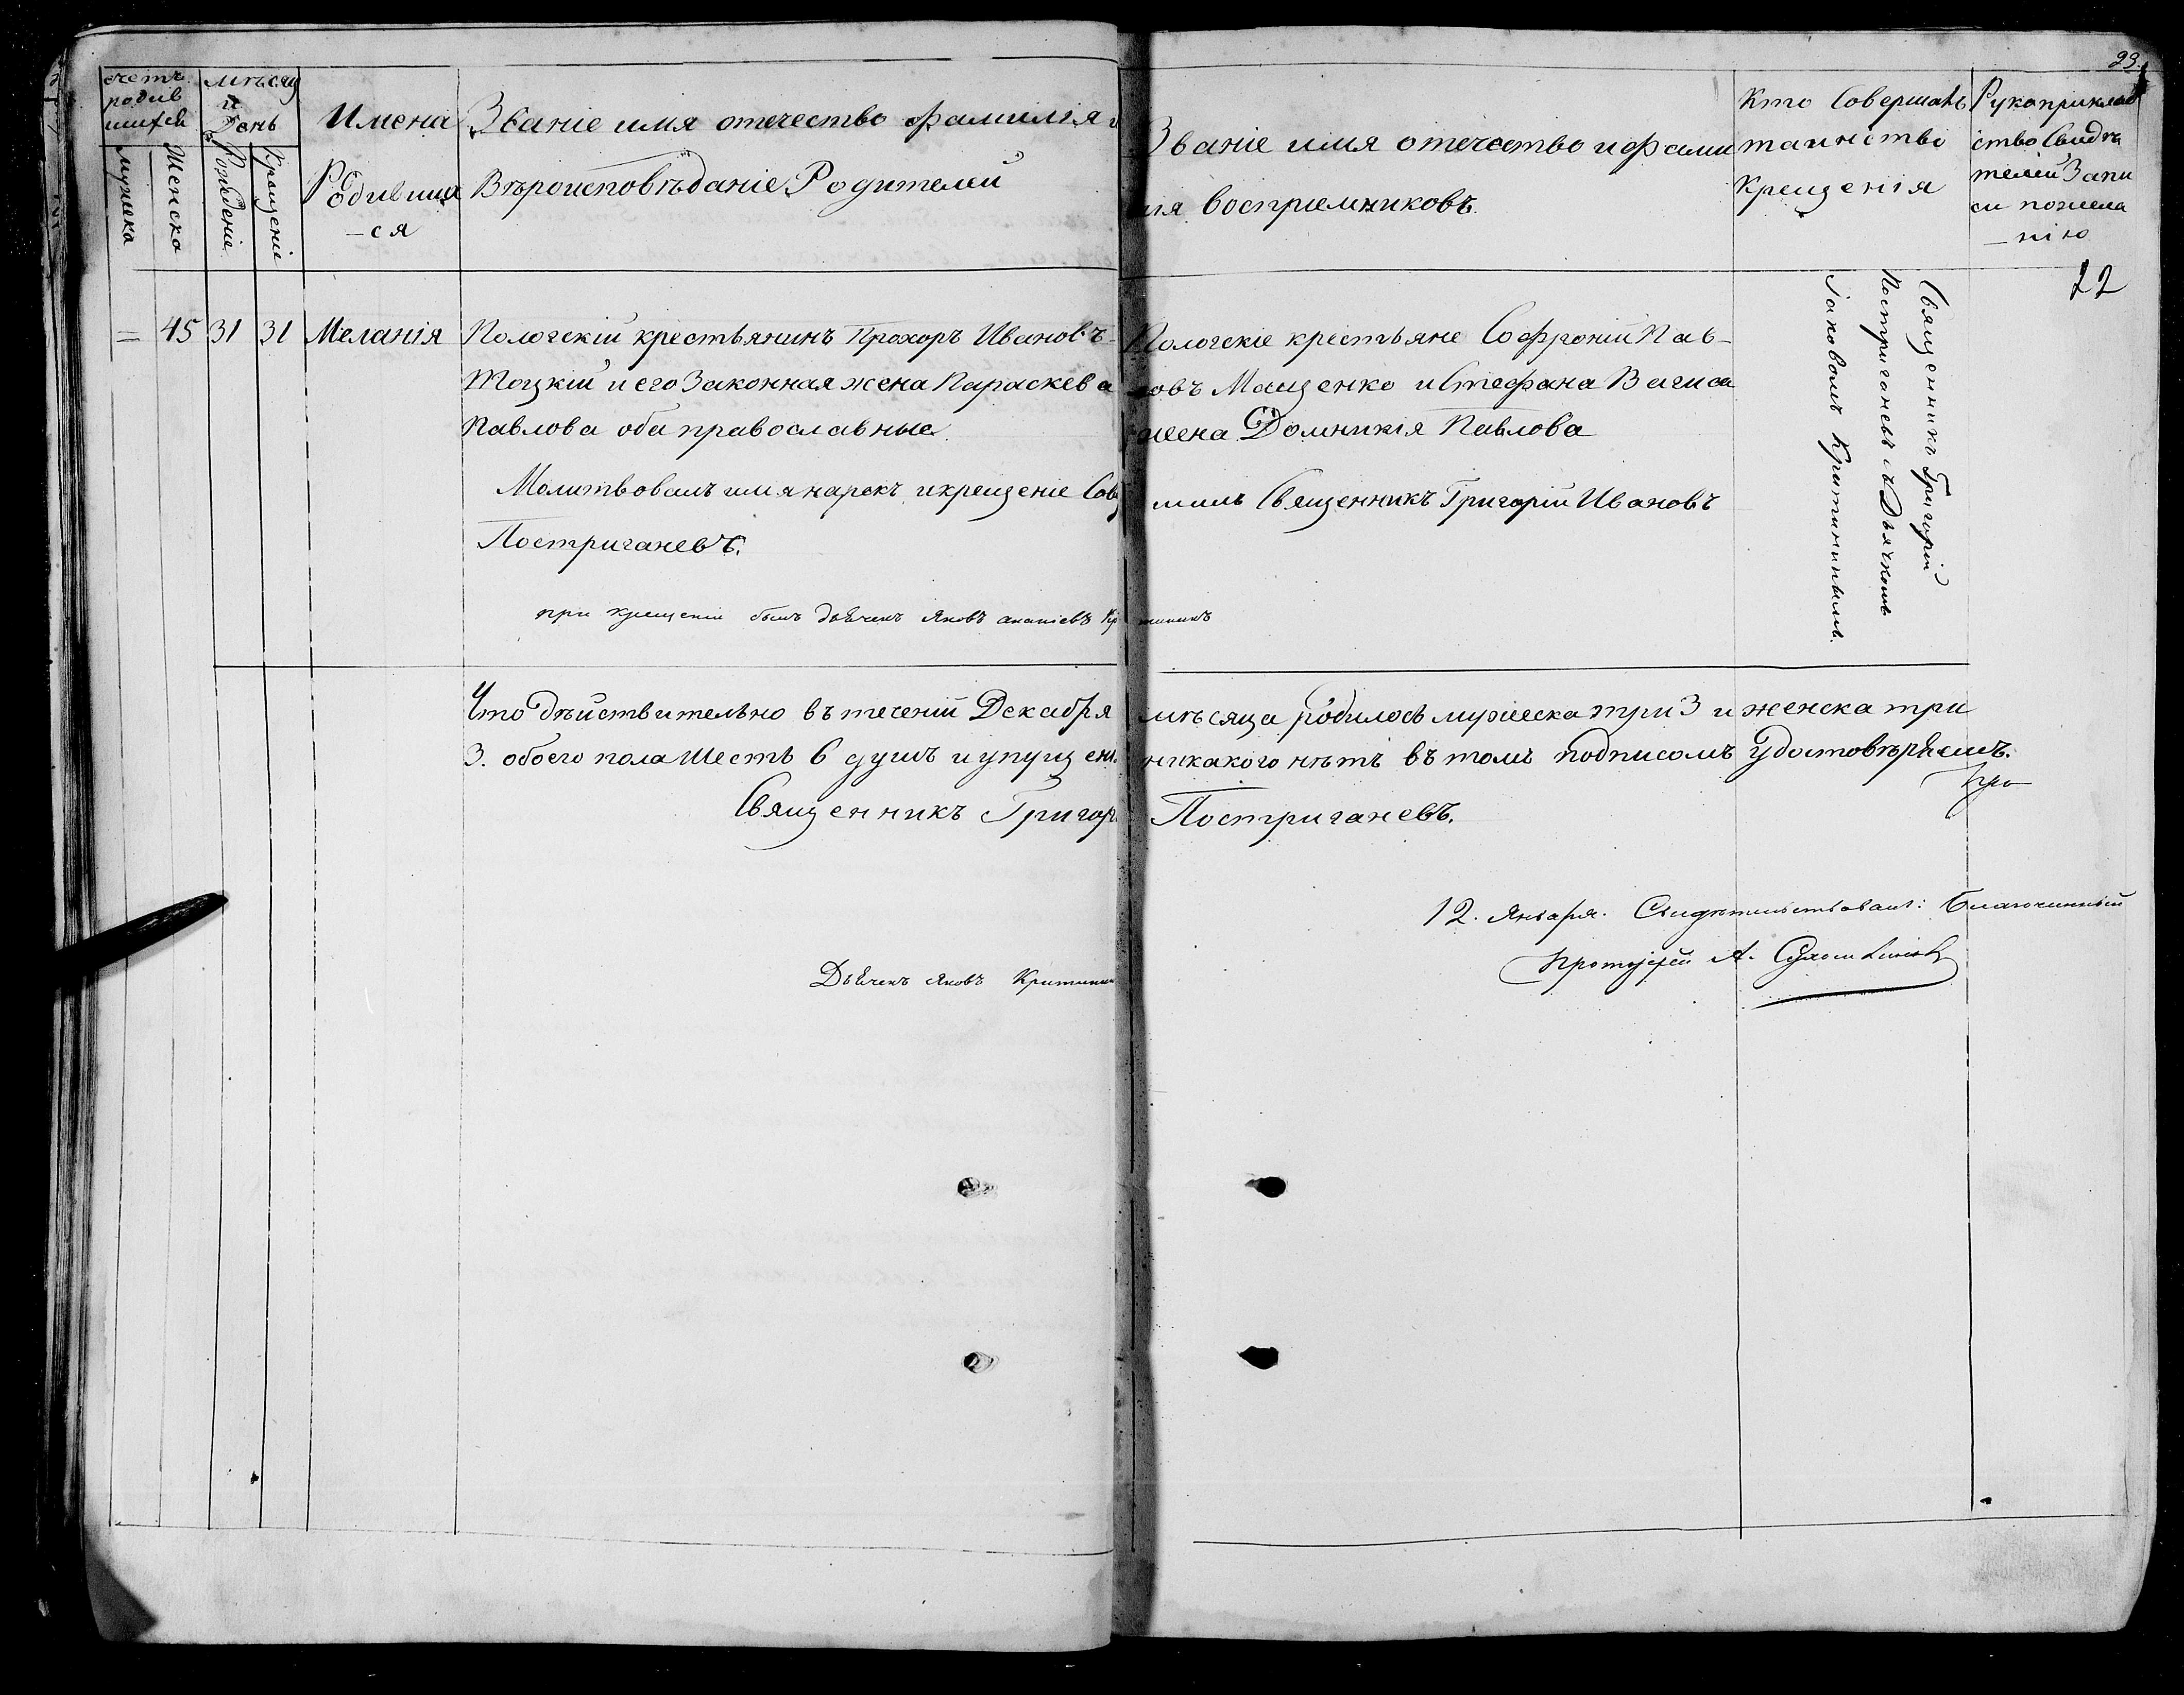 29.
счетъ
родив
шихся
мужеска
Женска
мѣсяц
и
День
Рожденіе
Крещеніе
Имена
Родивших
-ся
Званіе имя отечество фамилія и
Вѣроисповѣданіе Родителей
Званіе имя отечество и фами
лія воспріемниковъ.
Кто Совершалъ
таинство
Крещенія
Рукоприклад
ство Свидѣ
телей Запи
си пожела
-нію
22
= 45 31 31 Меланія
Пологскій крестьянинъ Прохоръ Ивановъ
Тоцкій и его Законная жена Параскева
Павлова оба православные.
Молитвовалъ имя нарекъ и крещеніе Сове
Постриганевъ.
при крещеніи былъ дьячекъ Яковъ ананіевъ Кри
Пологскіе крестьяне Софроній Пав-
ловъ Мащенко и Стефана
жена Домникія Павлова
шилъ Священникъ Григорій Ивановъ
тининъ
Священникъ Григорій
Постриганевъ съ Дьячкомъ
Іаковомъ Критининымъ.
Что дѣйствительно въ теченіи Декабря мѣсяца родилось мужеска три 3 и женска три
3. обоего пола Шесть 6 душъ и упущені никакого нѣтъ въ томъ подписомъ Удостовѣряемъ.
Священникъ Григор Постриганевъ.
Дьячекъ Яковъ Критинин
12. Января. Свидѣтельствовалъ: Благочинный
Протоіерей А.